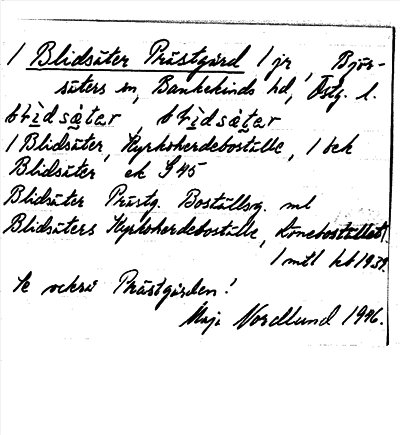 1 Blidsäter Prästgård 1 jr, Björ-
säters sn, Bankekinds hd, Östg. l.
blìdsä̀tər blìdsä̀tər
1 Blidsäter, Kyrkoherdeboställe, 1 bek
Blidsäter ek S45
Blidsäter Prästg. Boställsg. ml
Blidsäters Kyrkoherdeboställe, Löneboställe
1 mtl kb 1939.
Se också Prästgården!
Maja Nordlund 1946.